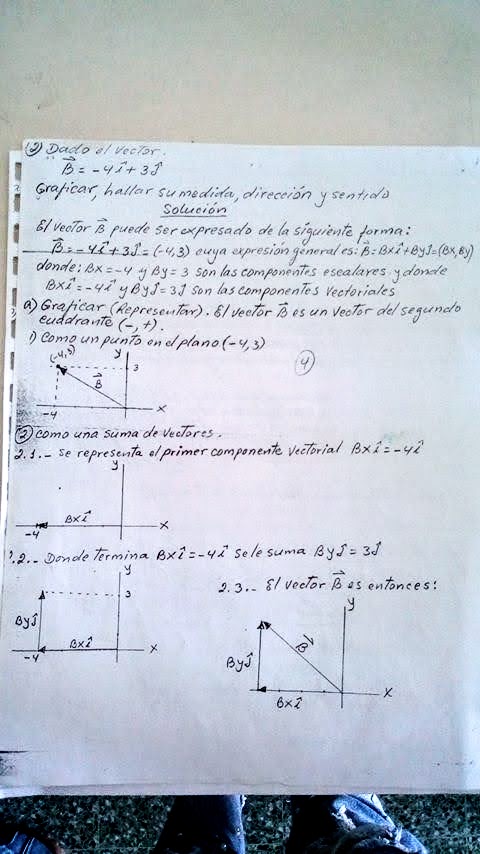 ② Dado el vector.
B⃗ = -4î + 3ĵ
Graficar, hallar su medida, dirección y sentido
Solución
El vector B⃗ puede ser expresado de la siguiente forma:
B⃗ = -4î + 3ĵ = (-4,3) cuya expresión general es: B⃗ = Bxî + Byĵ = (Bx, By)
donde: Bx = -4 y By = 3 son las componentes escalares y donde
Bxî = -4î y Byĵ = 3ĵ son las componentes vectoriales
a) Graficar (Representar). El vector B⃗ es un vector del segundo
cuadrante (-, +).
1) Como un punto en el plano (-4,3)
④
(-4,3) y 3
B⃗
-4 x
② Como una suma de vectores.
2.1.- Se representa el primer componente vectorial Bxî = -4î
y
Bxî x
-4
2.2.- Donde termina Bxî = -4î se le suma Byĵ = 3ĵ
y
3
Byĵ
-4 Bxî x
2.3.- El vector B⃗ es entonces:
y
B⃗
Byĵ
x
Bxî